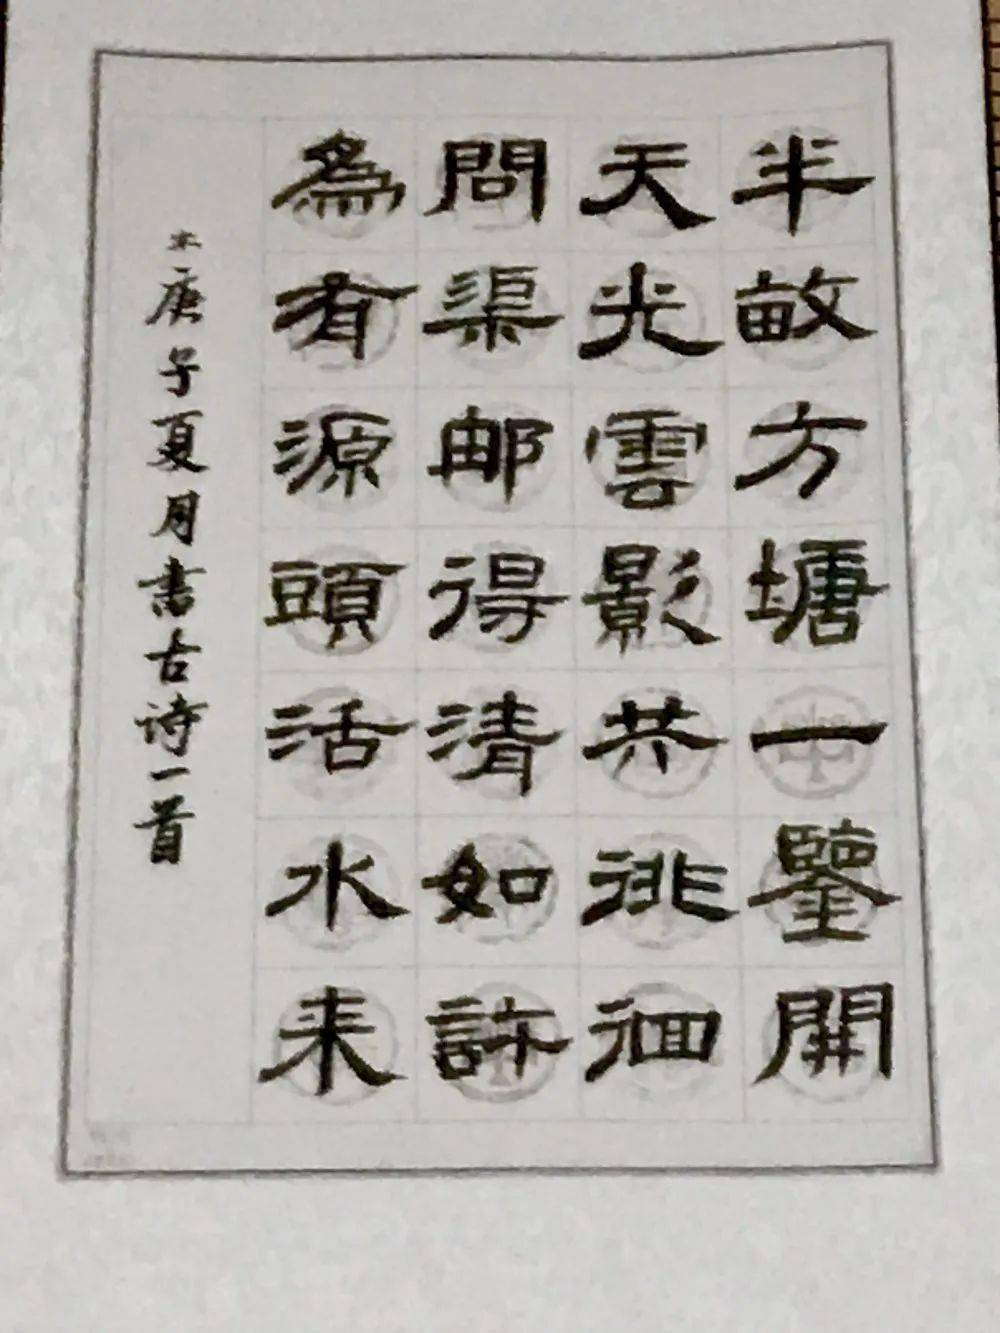 半畝方塘一鑒開
天光雲影共徘徊
問渠那得清如許
爲有源頭活水来
庚子夏月書古诗一首